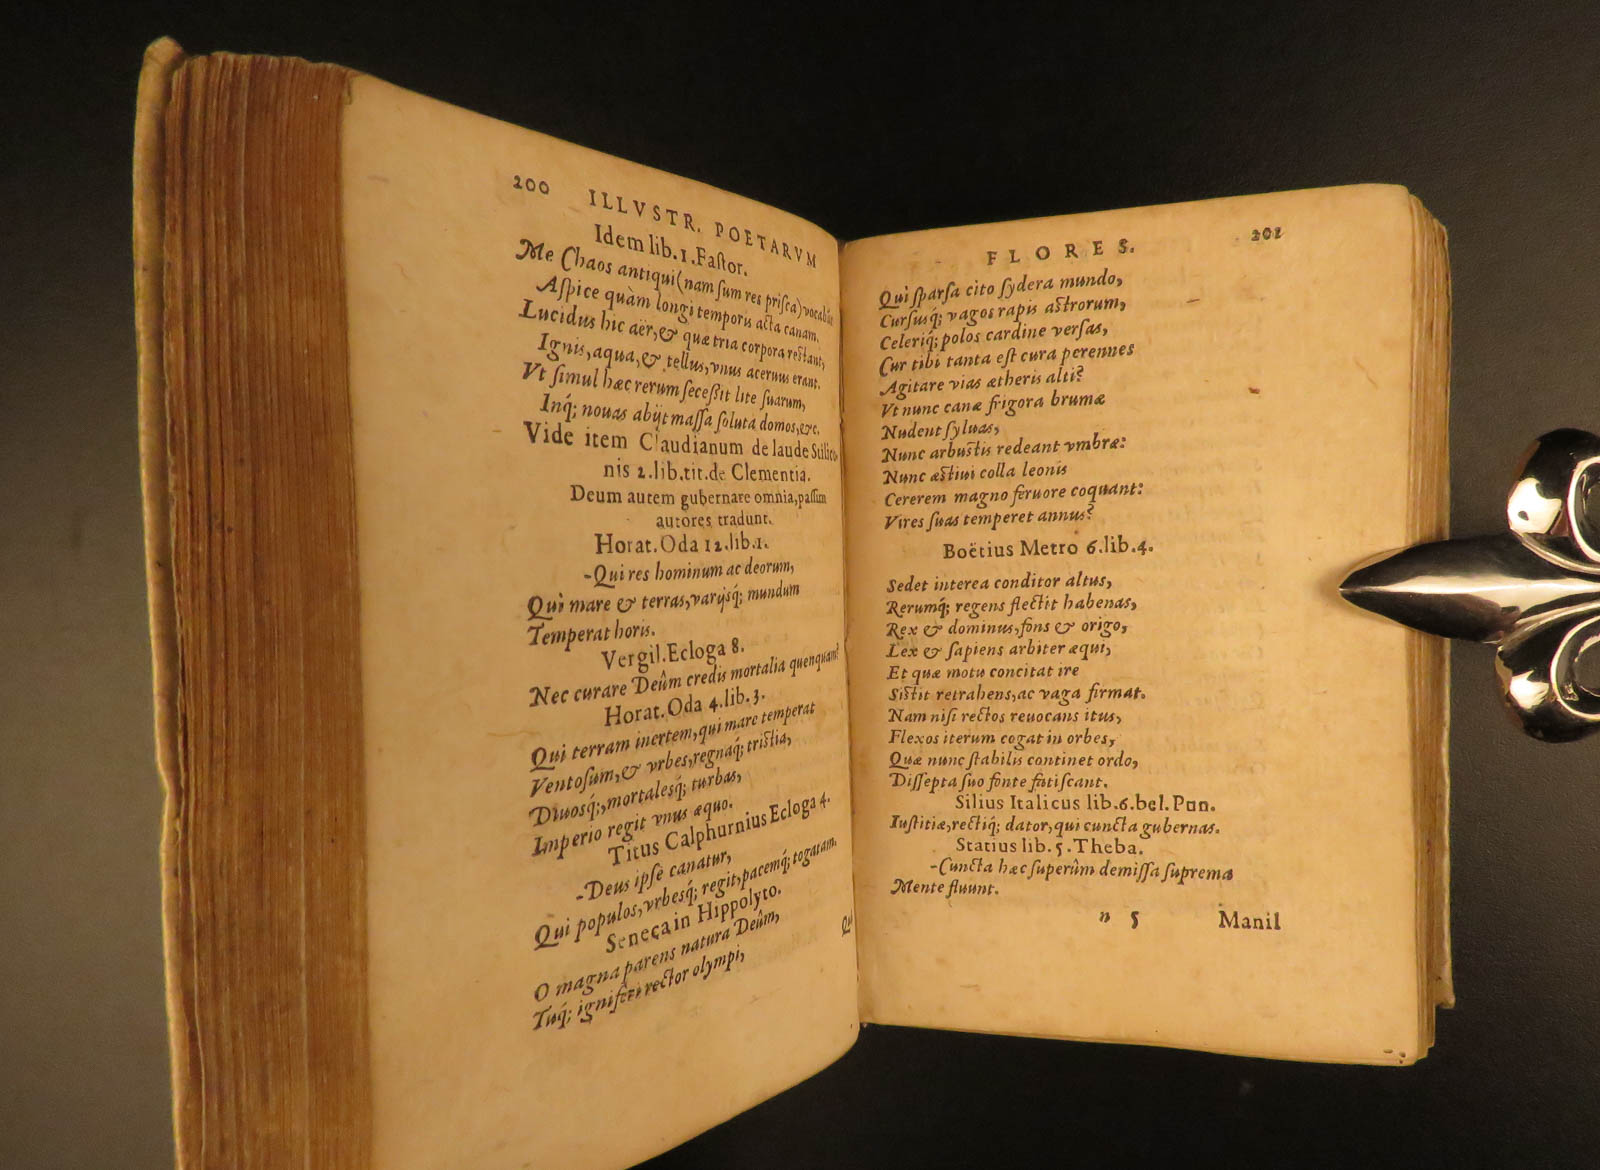 200 ILLVSTR. POETARVM
Idem lib.1.Fastor.
Me Chaos antiqui (nam ſum res priſca) vocabāt
Aſpice quàm longi temporis acta canam.
Lucidus hic aër, & quæ tria corpora restant,
Ignis, aqua, & tellus, vnus aceruus erant.
Vt ſimul hæc rerum ſeceſsit lite ſuarum,
Inq́; nouas abijt maſſa ſoluta domos, &c.
Vide item Claudianum de laude Stilico
nis 2.lib.tit.de Clementia.
Deum autem gubernare omnia, paſſim
autores tradunt.
Horat.Oda 12.lib.1.
-Qui res hominum ac deorum,
Qui mare & terras, varijsq́; mundum
Temperat horis.
Vergil.Ecloga 8.
Nec curare Deûm credis mortalia quenquam?
Horat.Oda 4.lib.3.
Qui terram inertem, qui mare temperat
Ventoſum, & vrbes, regnaq́; tristia,
Diuosq́;, mortalesq́; turbas,
Imperio regit vnus æquo.
Titus Calphurnius Ecloga 4.
-Deus ipſe canatur,
Qui populos, vrbesq́; regit, pacemq́; togatam.
Seneca in Hippolyto.
O magna parens natura Deûm,
Tuq́; igniferi rector olympi,
Qui
FLORES. 201
Qui ſparſa cito ſydera mundo,
Curſusq́; vagos rapis astrorum,
Celeriq́; polos cardine verſas,
Cur tibi tanta eſt cura perennes
Agitare vias ætheris alti?
Vt nunc canæ frigora brumæ
Nudent ſyluas,
Nunc arbustis redeant vmbræ:
Nunc æstiui colla leonis
Cererem magno feruore coquant:
Vires ſuas temperet annus?
Boëtius Metro 6.lib.4.
Sedet interea conditor altus,
Rerumq́; regens flectit habenas,
Rex & dominus, fons & origo,
Lex & ſapiens arbiter æqui,
Et quæ motu concitat ire
Sistit retrahens, ac vaga firmat.
Nam niſi rectos reuocans itus,
Flexos iterum cogat in orbes,
Quæ nunc ſtabilis continet ordo,
Diſſepta ſuo fonte fatiſcant.
Silius Italicus lib.6.bel.Pun.
Iuſtitiæ, rectiq́; dator, qui cuncta gubernas.
Statius lib.5.Theba.
-Cuncta hæc ſuperûm demiſſa ſuprema
Mente fluunt.
n 5 Manil